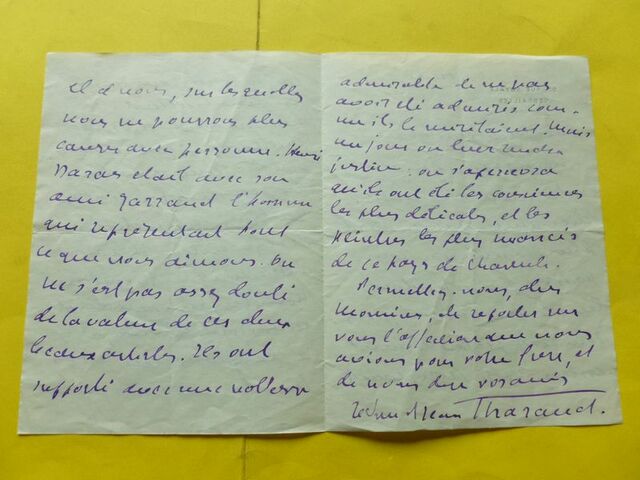 et d'nous, sur lesquelles
nous ne pourrons plus
causer avec personne. Henri
était avec son
ami l'homme
qui représentait tout
ce que nous aimons. On
ne s'est pas assez douté
de la valeur de ces deux
beaux artistes. Ils ont
supporté avec une noblesse
admirable de ne pas
avoir été admirés com-
me ils le méritaient. Mais
un jour on leur rendra
justice. on s'apercevra
qu'ils ont été les consciences
les plus délicates, et les
peintres les plus nuancés
de ce pays de
Permettez-nous, dear
de reporter sur
vous l'affection que nous
avions pour votre frère, et
de nous dire vos amis
Jérôme et Jean Tharaud.